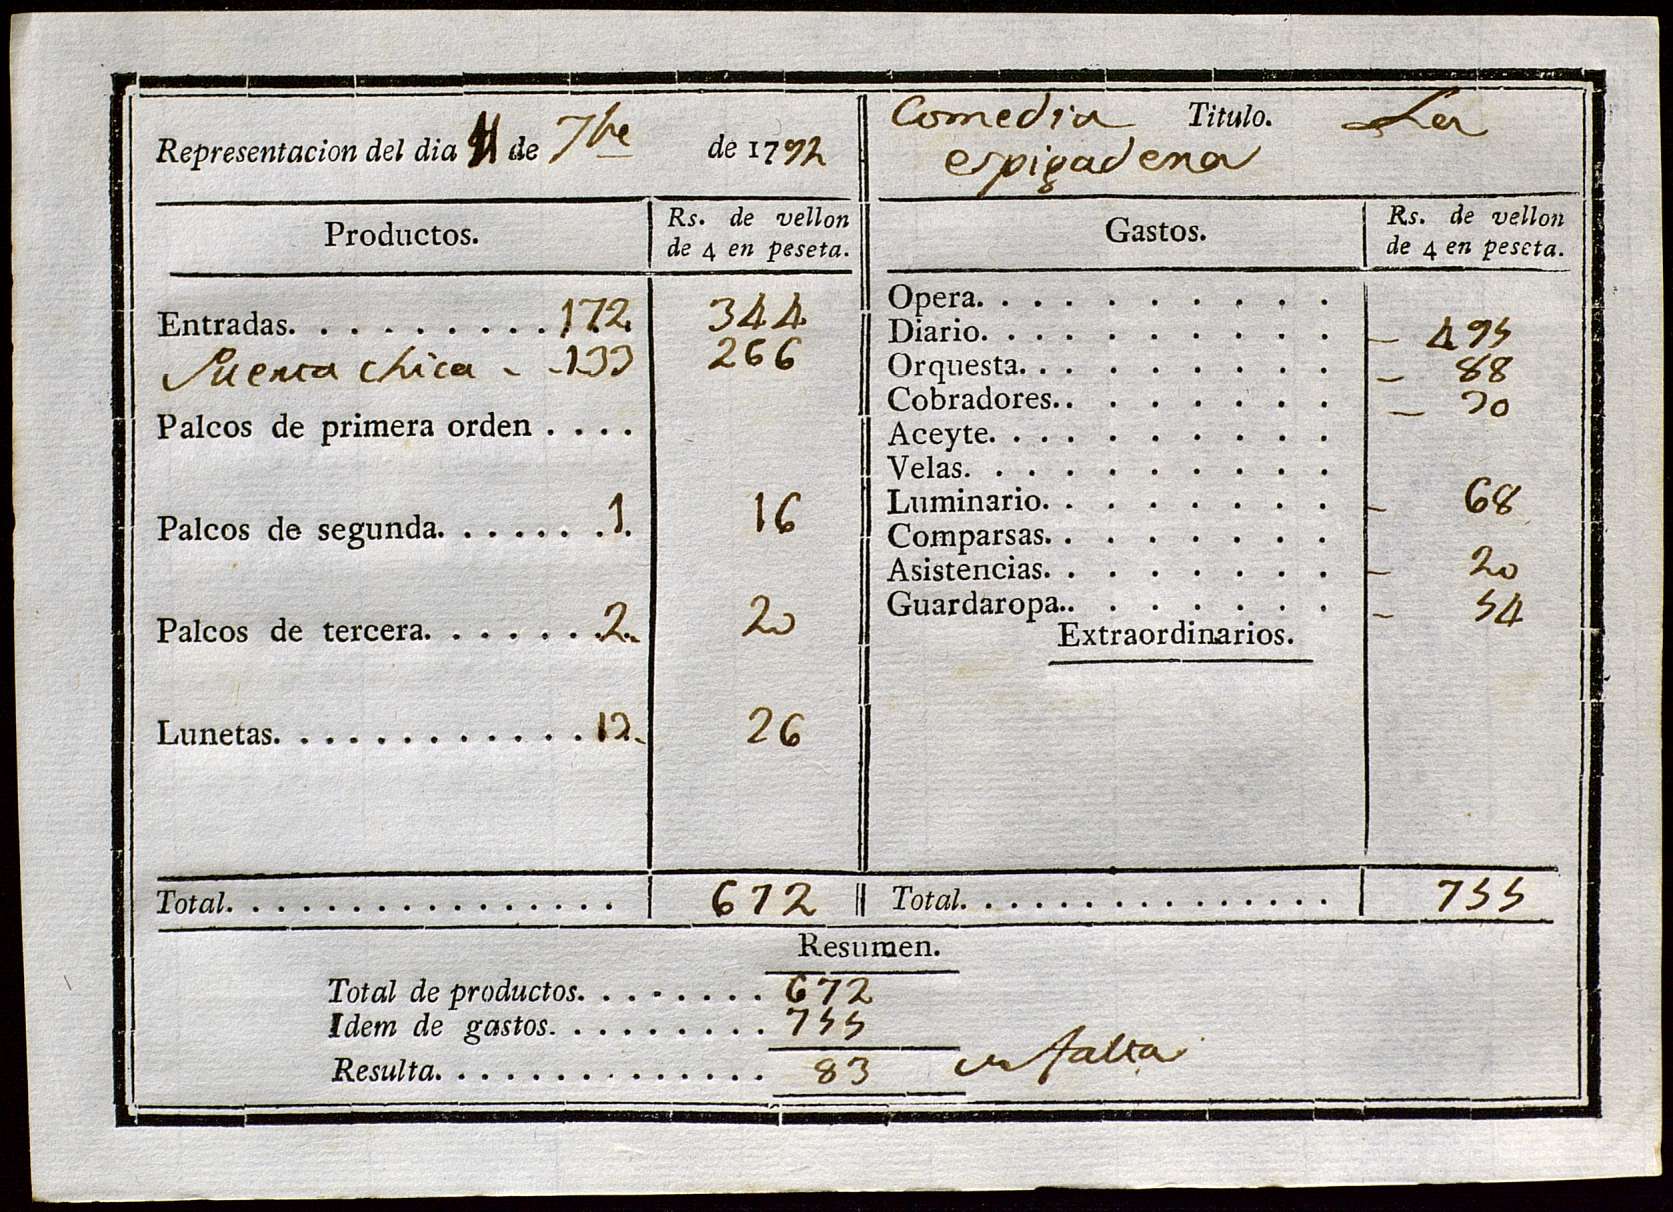 Representacion del dia de 7bre de 1792
Comedia Titulo. La
espigadera
Productos.
Rs. de vellon
de 4 en peseta.
Gastos.
Rs. de vellon
de 4 en peseta.
Entradas. 172. 344
Puerta chica - - 133 266
Palcos de primera orden
Palcos de segunda. 1. 16
Palcos de tercera. 2. 20
Lunetas. 13. 26
Total. 672
Opera.
Diario. – 495
Orquesta. – 88
Cobradores. – 30
Aceyte.
Velas.
Luminario. – 68
Comparsas.
Asistencias. – 20
Guardaropa. – 54
Extraordinarios.
Total. 755
Resumen.
Total de productos. 672
Idem de gastos. 755
Resulta. 83 en falta